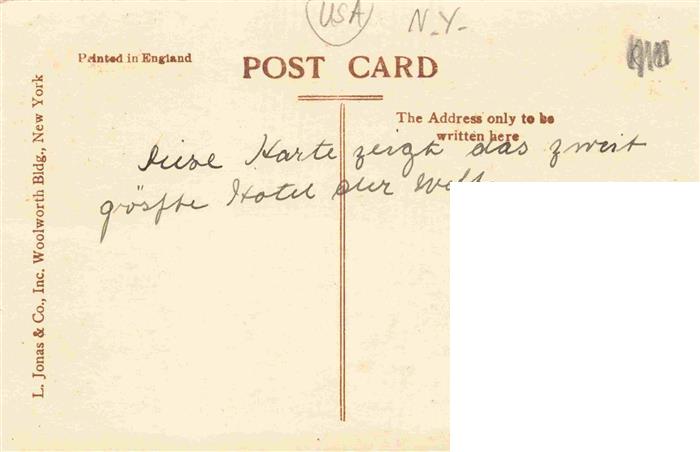 USA N.Y.
Printed in England
POST CARD
The Address only to be
written here
Diese Karte zeigt das zweit
größte Hotel der Welt
L. Jonas & Co., Inc. Woolworth Bldg., New York